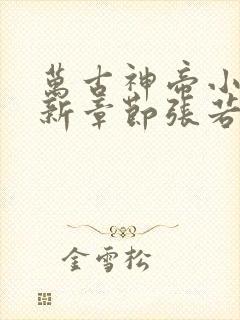 萬古神帝小
新章節張若
金雪松